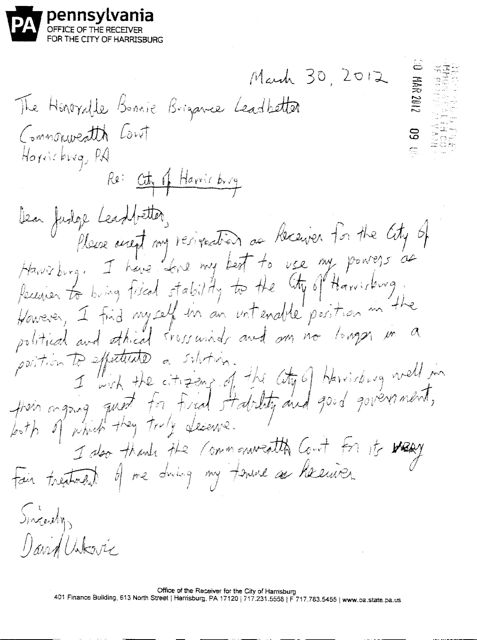 PA pennsylvania
OFFICE OF THE RECEIVER
FOR THE CITY OF HARRISBURG
March 30, 2012
The Honorable Bonnie Brigance Leadbetter
Commonwealth Court
Harrisburg, PA
Re: City of Harrisburg
Dear Judge Leadbetter,
Please accept my resignation as Receiver for the City of
Harrisburg. I have done my best to use my powers as
Receiver to bring fiscal stability to the City of Harrisburg.
However, I find myself in an untenable position in the
political and ethical crosswinds and am no longer in a
position to effectuate a solution.
I wish the citizens of the City of Harrisburg well in
their ongoing quest for fiscal stability and good government,
both of which they truly deserve.
I also thank the Commonwealth Court for its very
fair treatment of me during my tenure as Receiver.
Sincerely,
David Unkovic
Office of the Receiver for the City of Harrisburg
401 Finance Building, 613 North Street | Harrisburg, PA 17120 | 717.231.5558 | F 717.763.5455 | www.pa.state.pa.us
30 MAR 2012 09